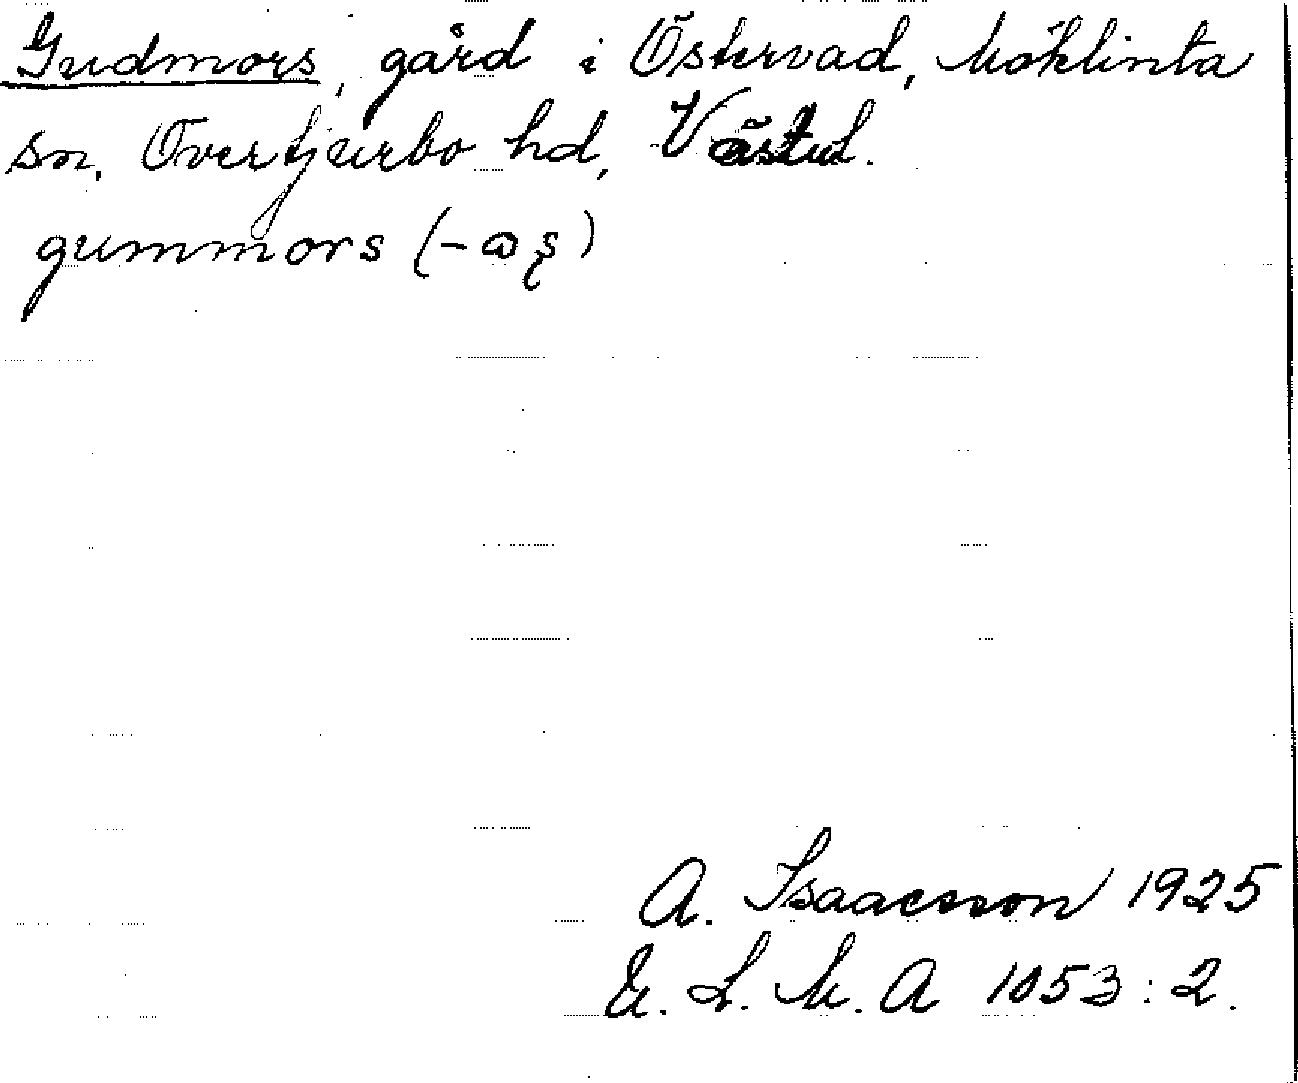 Gudmors, gård i Östervad, Möklinta
sn, Övertjurbo hd, Västml.
gummors (-
A. Isaacsson 1925
U. L. M. A 1053:2.